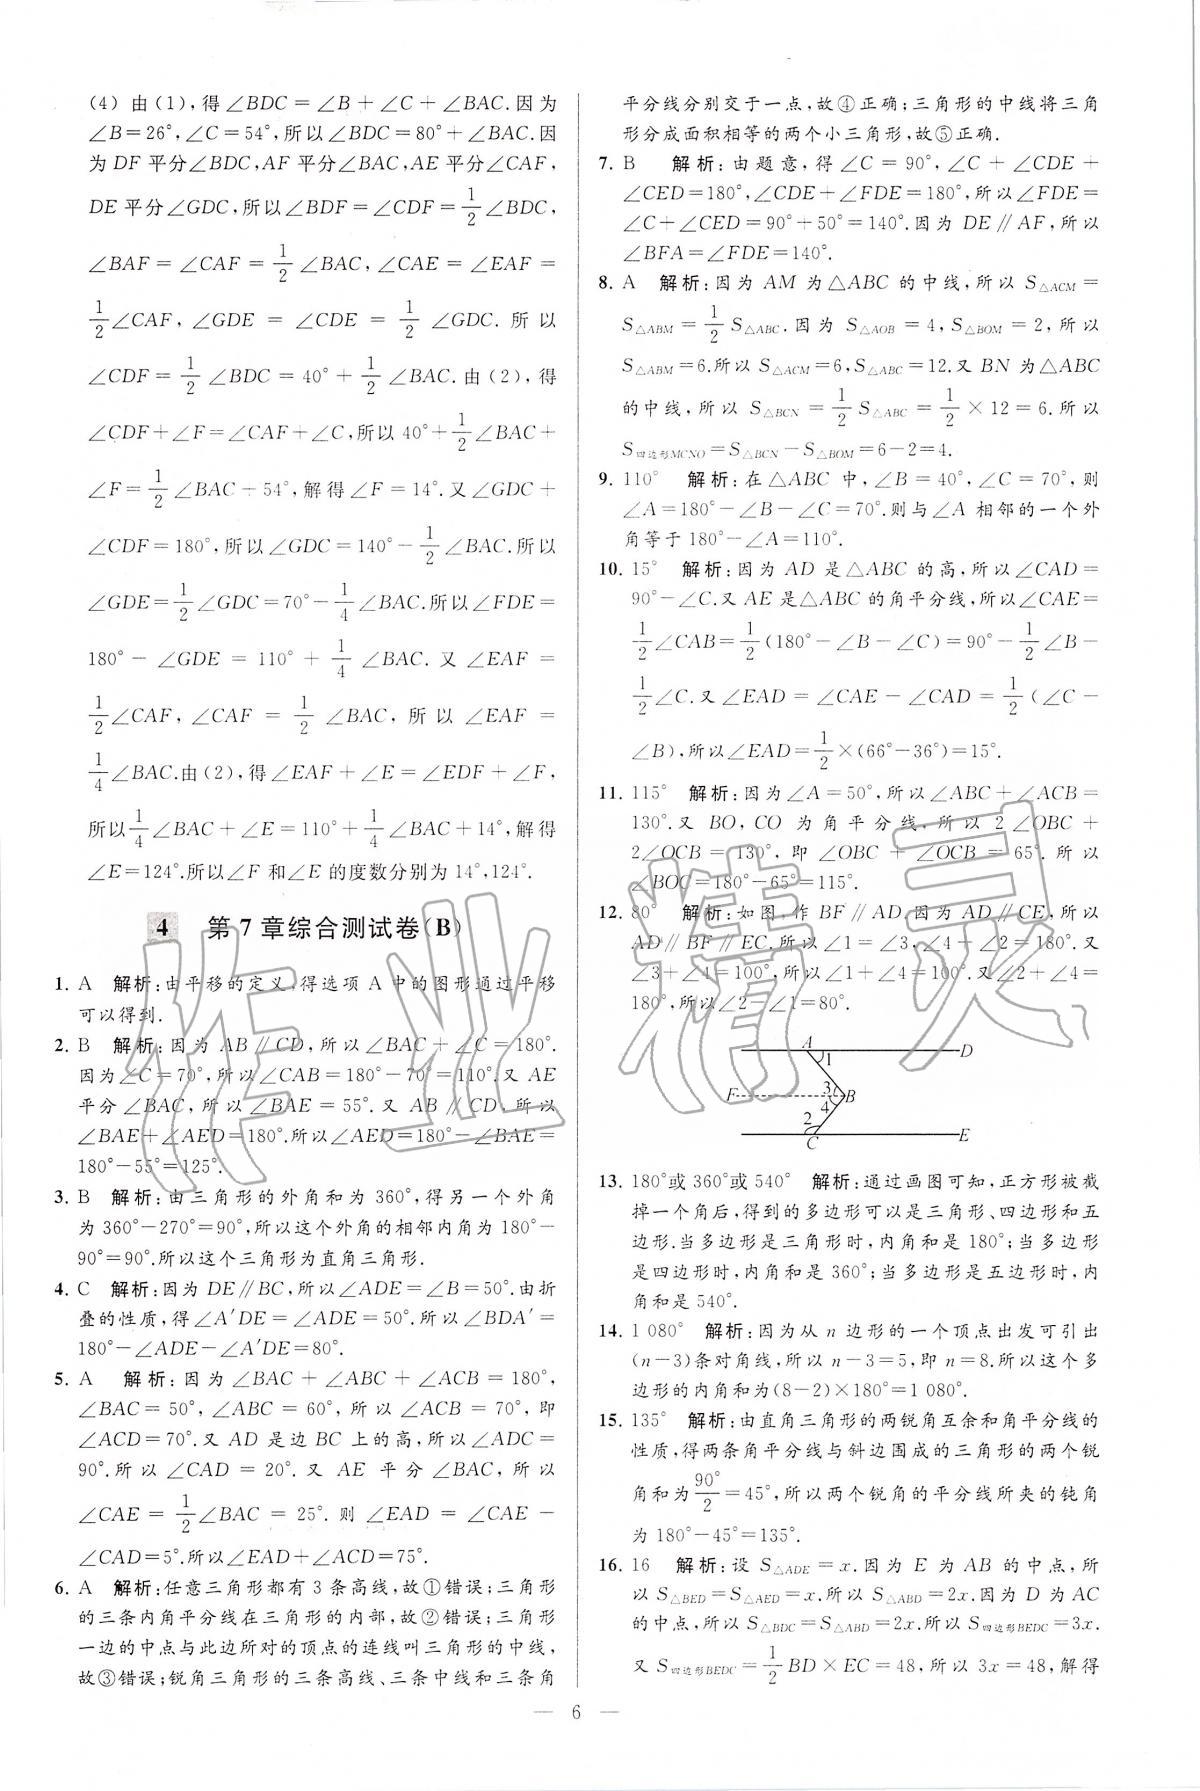 (4) 由(1),得∠BDC=∠B+∠C+∠BAC.因为
∠B=26°,∠C=54°,所以∠BDC=80°+∠BAC.因
为DF平分∠BDC,AF平分∠BAC,AE平分∠CAF,
DE平分∠GDC,所以∠BDF=∠CDF=1/2∠BDC,
∠BAF=∠CAF=1/2∠BAC,∠CAE=∠EAF=
1/2∠CAF,∠GDE=∠CDE=1/2∠GDC.所以
∠CDF=1/2∠BDC=40°+1/2∠BAC.由(2),得
∠CDF+∠F=∠CAF+∠C,所以40°+1/2∠BAC+
∠F=1/2∠BAC+54°,解得∠F=14°.又∠GDC+
∠CDF=180°,所以∠GDC=140°-1/2∠BAC.所以
∠GDE=1/2∠GDC=70°-1/4∠BAC.所以∠FDE=
180°-∠GDE=110°+1/4∠BAC.又∠EAF=
1/2∠CAF,∠CAF=1/2∠BAC,所以∠EAF=
1/4∠BAC.由(2),得∠EAF+∠E=∠EDF+∠F,
所以1/4∠BAC+∠E=110°+1/4∠BAC+14°,解得
∠E=124°.所以∠F和∠E的度数分别为14°,124°.
4 第7章综合测试卷(B)
1. A 解析:由平移的定义,得选项A中的图形通过平移
可以得到.
2. B 解析:因为AB∥CD,所以∠BAC+∠C=180°.
因为∠C=70°,所以∠CAB=180°-70°=110°.又AE
平分∠BAC,所以∠BAE=55°.又AB∥CD,所以
∠BAE+∠AED=180°.所以∠AED=180°-∠BAE=
180°-55°=125°.
3. B 解析:由三角形的外角和为360°,得另一个外角
为360°-270°=90°,所以这个外角的相邻内角为180°-
90°=90°.所以这个三角形为直角三角形.
4. C 解析:因为DE∥BC,所以∠ADE=∠B=50°.由折
叠的性质,得∠A′DE=∠ADE=50°.所以∠BDA′=
180°-∠ADE-∠A′DE=80°.
5. A 解析:因为∠BAC+∠ABC+∠ACB=180°,
∠BAC=50°,∠ABC=60°,所以∠ACB=70°,即
∠ACD=70°.又AD是边BC上的高,所以∠ADC=
90°.所以∠CAD=20°.又AE平分∠BAC,所以
∠CAE=1/2∠BAC=25°.则∠EAD=∠CAE-
∠CAD=5°.所以∠EAD+∠ACD=75°.
6. A 解析:任意三角形都有3条高线,故①错误;三角形
的三条内角平分线在三角形的内部,故②错误;三角形
一边的中点与此边所对的顶点的连线叫三角形的中线,
故③错误;锐角三角形的三条高线、三条中线和三条角
平分线分别交于一点,故④正确;三角形的中线将三角
形分成面积相等的两个小三角形,故⑤正确.
7. B 解析:由题意,得∠C=90°,∠C+∠CDE+
∠CED=180°,∠CDE+∠FDE=180°,所以∠FDE=
∠C+∠CED=90°+50°=140°.因为DE∥AF,所以
∠BFA=∠FDE=140°.
8. A 解析:因为AM为△ABC的中线,所以S△ACM=
S△ABM=1/2S△ABC.因为S△AOB=4,S△BOM=2,所以
S△ABM=6.所以S△ACM=6,S△ABC=12.又BN为△ABC
的中线,所以S△BCN=1/2S△ABC=1/2×12=6.所以
S四边形MCNO=S△BCN-S△BOM=6-2=4.
9. 110° 解析:在△ABC中,∠B=40°,∠C=70°,则
∠A=180°-∠B-∠C=70°.则与∠A相邻的一个外
角等于180°-∠A=110°.
10. 15° 解析:因为AD是△ABC的高,所以∠CAD=
90°-∠C.又AE是△ABC的角平分线,所以∠CAE=
1/2∠CAB=1/2(180°-∠B-∠C)=90°-1/2∠B-
1/2∠C.又∠EAD=∠CAE-∠CAD=1/2(∠C-
∠B),所以∠EAD=1/2×(66°-36°)=15°.
11. 115° 解析:因为∠A=50°,所以∠ABC+∠ACB=
130°.又BO,CO为角平分线,所以2∠OBC+
2∠OCB=130°,即∠OBC+∠OCB=65°.所以
∠BOC=180°-65°=115°.
12. 80° 解析:如图,作BF∥AD.因为AD∥CE,所以
AD∥BF∥EC.所以∠1=∠3,∠4+∠2=180°.又
∠3+∠4=100°,所以∠1+∠4=100°.又∠2+∠4=
180°,所以∠2-∠1=80°.
A D
1
F 3 B
4
2
C E
13. 180°或360°或540° 解析:通过画图可知,正方形被截
掉一个角后,得到的多边形可以是三角形、四边形和五
边形.当多边形是三角形时,内角和是180°;当多边形
是四边形时,内角和是360°;当多边形是五边形时,内
角和是540°.
14. 1 080° 解析:因为从n边形的一个顶点出发可引出
(n-3)条对角线,所以n-3=5,即n=8.所以这个多
边形的内角和为(8-2)×180°=1 080°.
15. 135° 解析:由直角三角形的两锐角互余和角平分线的
性质,得两条角平分线与斜边围成的三角形的两个锐
角和为90°/2=45°,所以两个锐角的平分线所夹的钝角
为180°-45°=135°.
16. 16 解析:设S△ADE=x.因为E为AB的中点,所
以S△BED=S△AED=x.所以S△ABD=2x.因为D为AC
的中点,所以S△BDC=S△ABD=2x.所以S四边形BEDC=3x.
又S四边形BEDC=1/2BD×EC=48,所以3x=48,解得
— 6 —
作业精灵